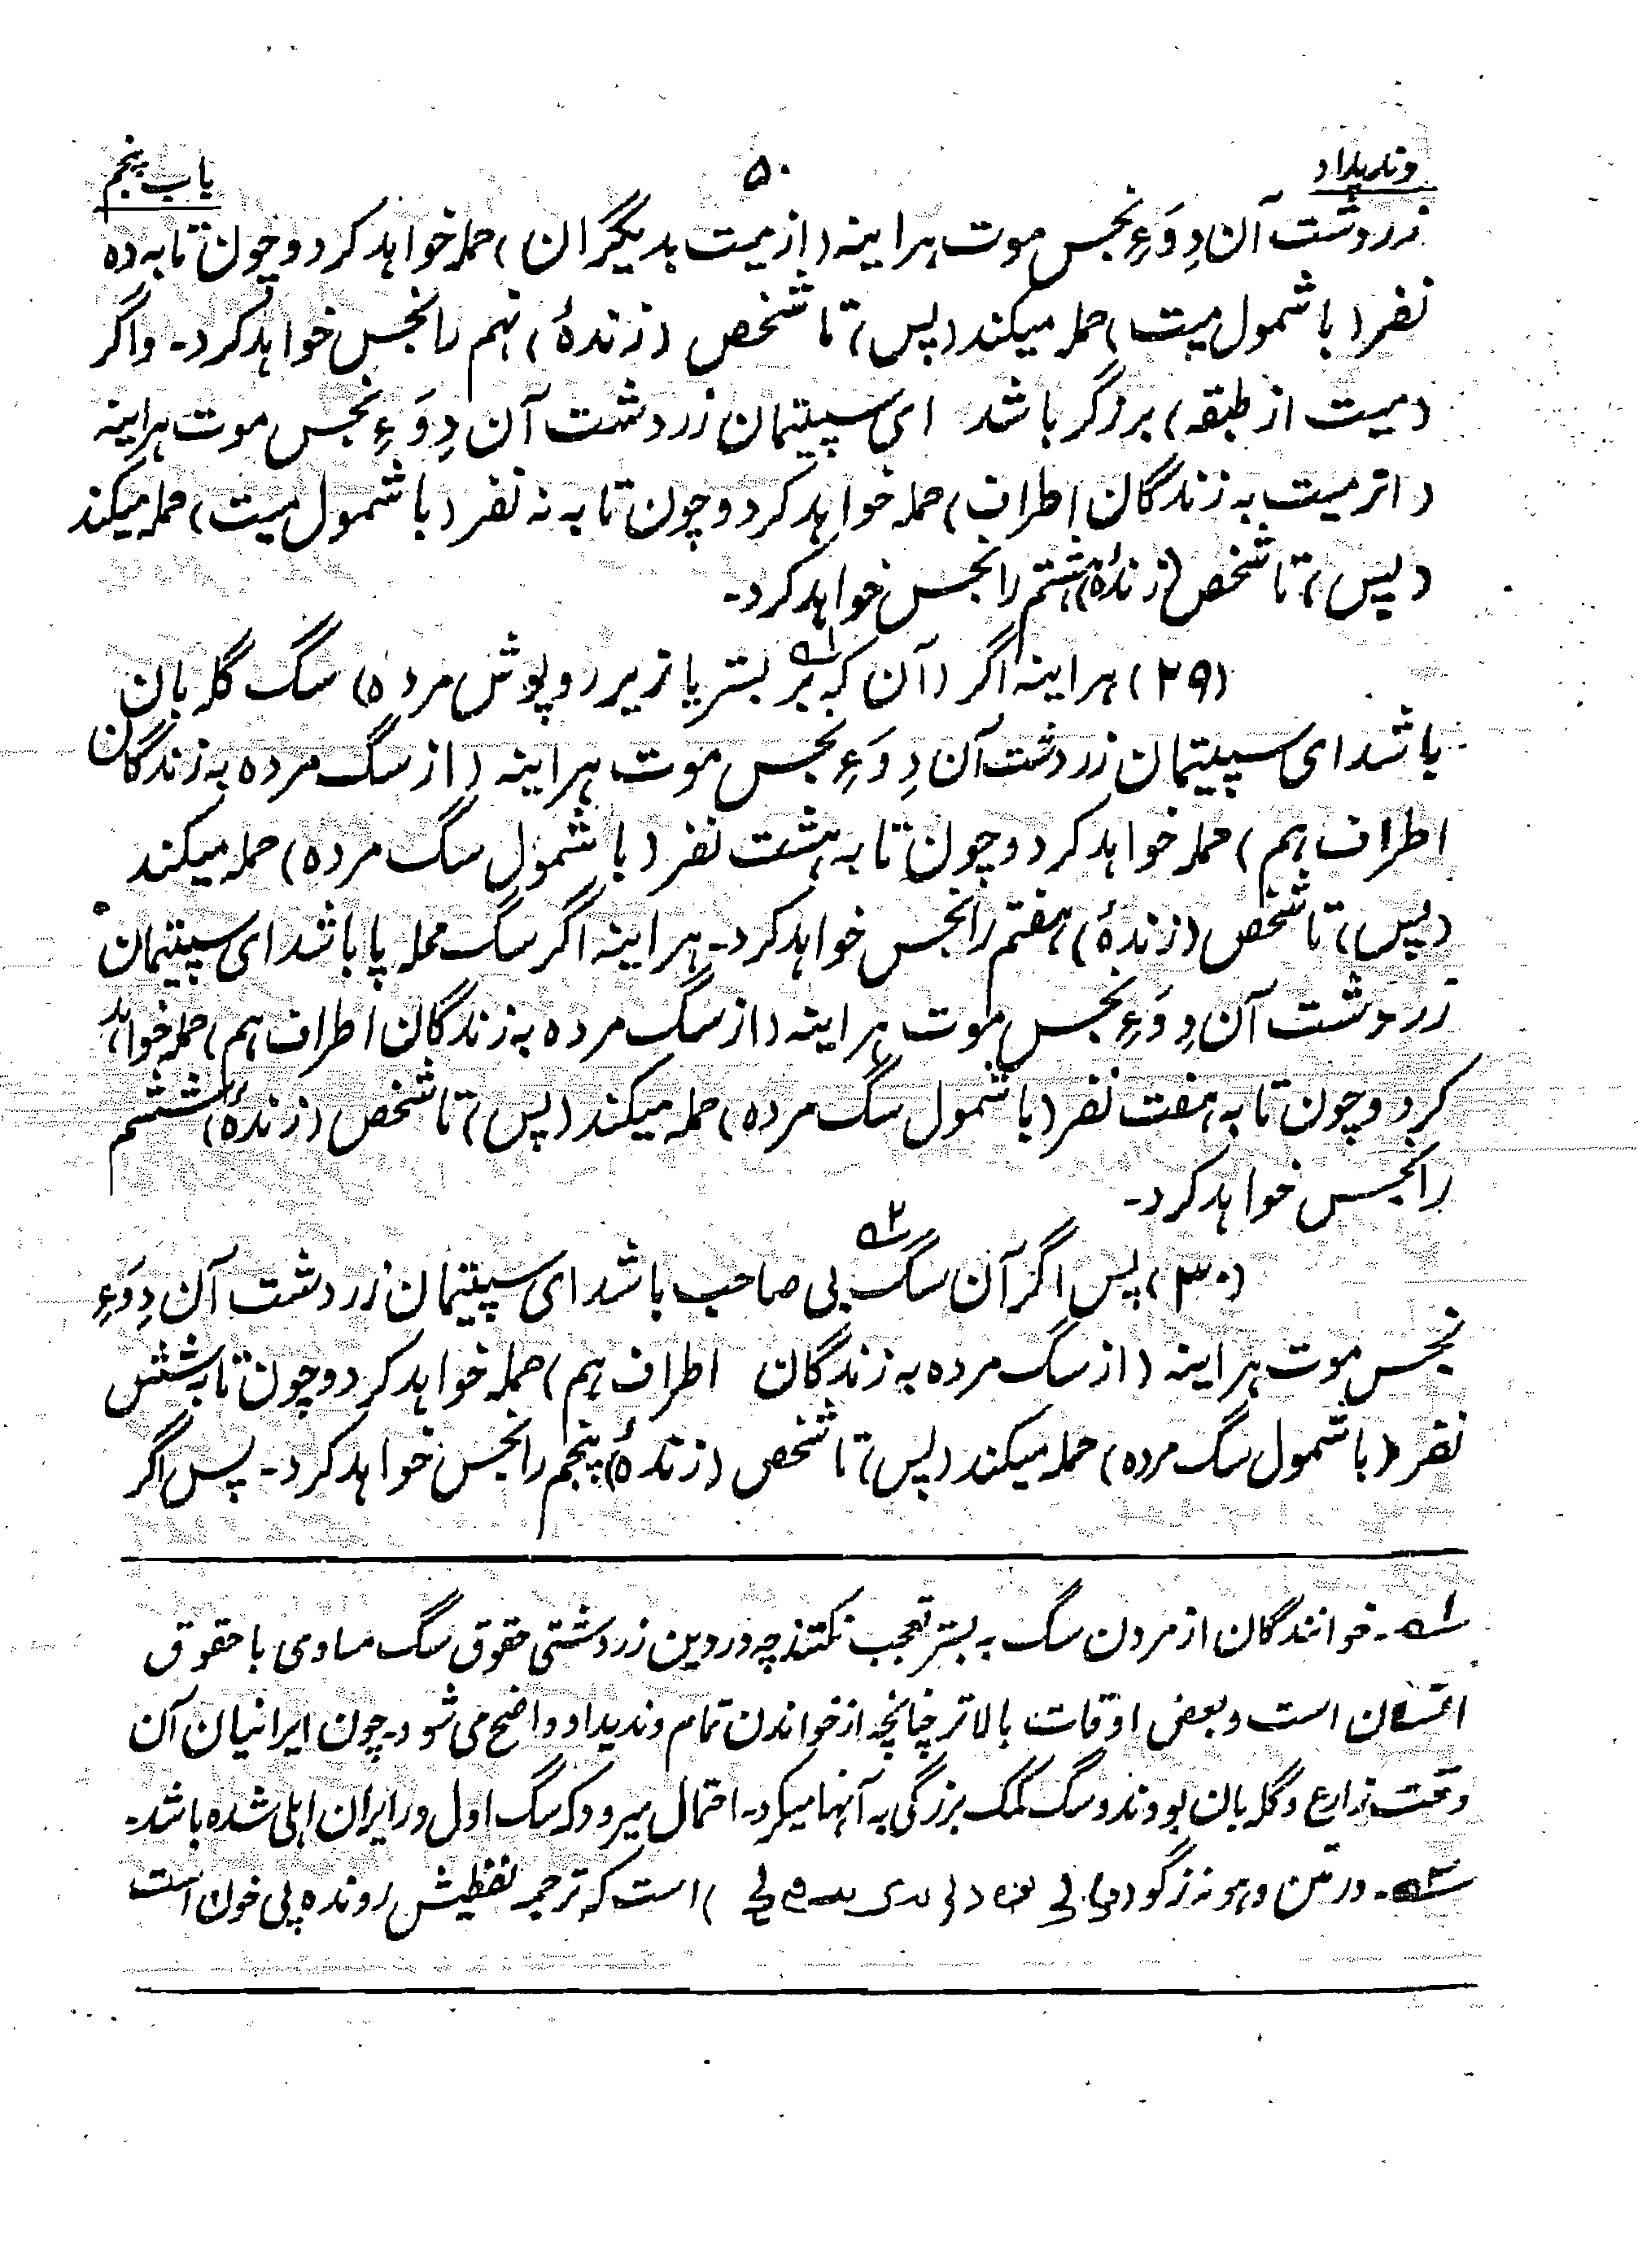 وندیداد ۵۰ باب پنجم
زردشت آن دِوَءِ نجس موت هراینه (از میت بدیگران) حمله خواهد کرد و چون تا به ده
نفر (با شمول میت) حمله میکند (پس) تا شخص (زندهٔ) نهم را نجس خواهد کرد۔ و اگر
(میت از طبقه) برزگر باشد ای سپیتمان زردشت آن دِوَءِ نجس موت هراینه
(اثر میت به زندگان اطراف) حمله خواهد کرد و چون تا به نه نفر (با شمول میت) حمله میکند
(پس) تا شخص (زندهٔ) هشتم را نجس خواهد کرد۔
(۲۹) هراینه اگر (آن که بر بستر یا زیر روپوش مرده) سگ گله بان
باشد ای سپیتمان زردشت آن دِوَءِ نجس موت هراینه (از سگ مرده به زندگان
اطراف هم) حمله خواهد کرد و چون تا به هشت نفر (با شمول سگ مرده) حمله میکند
(پس) تا شخص (زندهٔ) هفتم را نجس خواهد کرد۔ هراینه اگر سگ محله پا باشد ای سپیتمان
زردشت آن دِوَءِ نجس موت هراینه (از سگ مرده به زندگان اطراف هم) حمله خواهد
کرد و چون تا به هفت نفر (با شمول سگ مرده) حمله میکند (پس) تا شخص (زندهٔ) ششم
را نجس خواهد کرد۔
(۳۰) پس اگر آن سگ بی صاحب باشد ای سپیتمان زردشت آن دِوَءِ
نجس موت هراینه (از سگ مرده به زندگان اطراف هم) حمله خواهد کرد و چون تا به شش
نفر (با شمول سگ مرده) حمله میکند (پس) تا شخص (زندهٔ) پنجم را نجس خواهد کرد۔ پس اگر
۱۔ خوانندگان از مردن سگ به بستر تعجب نکنند چه در دین زردشتی حقوق سگ مساوی با حقوق
انسان است و بعض اوقات بالاتر چنانچه از خواندن تمام وندیداد واضح می شود۔ چون ایرانیان آن
وقت زارع و گله بان بودند و سگ کمک بزرگی به آنها میکرد۔ احتمال میرود که سگ اول در ایران اهلی شده باشد۔
۲۔ در متن وهونه زگو ( ) است که ترجمه لفظیش رونده پی خون است